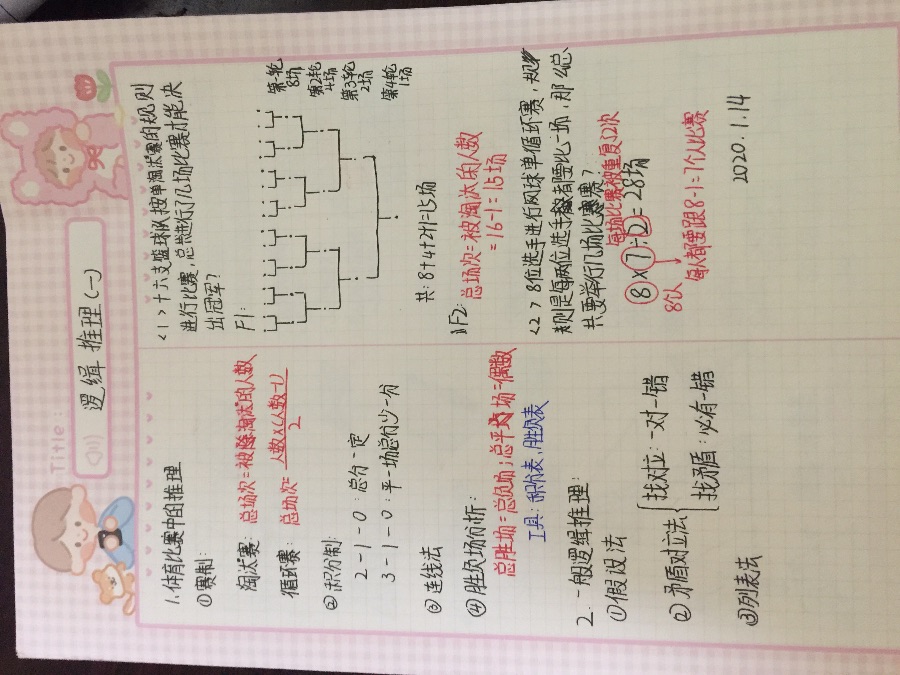 Title:
逻缉推理(一)
1.体育比赛中的推理
①赛制:
淘汰赛:总场次=被淘汰的人数
循环赛:总场次=人数×(人数-1)/2
②积分制:
2-1-0:总分一定
3-1-0:平一场总分少一分
③连线法
④胜负场分析:
总胜场=总负场;总平场=偶数
工具:积分表,胜负表
2.一般逻缉推理:
①假设法
②矛盾对立法{找对立:一对一错
找矛盾:必有一错
③列表法
<1>十六支篮球队按单淘汰赛的规则
进行比赛,总共进行了几场比赛才能决
出冠军?
F1:
第一轮
8场
第2轮
4场
第3轮
2场
第4轮
1场
共:8+4+2+1=15场
F2:总场次=被淘汰的人数
=16-1=15场
<2>8位选手进行网球单循环赛,
规则是每两位选手都要比一场,那么总
共要举行几场比赛?
每场比赛被重复算2次
8×7÷2=28场
8个人
每人都要跟8-1=7个人比赛
2020.1.14